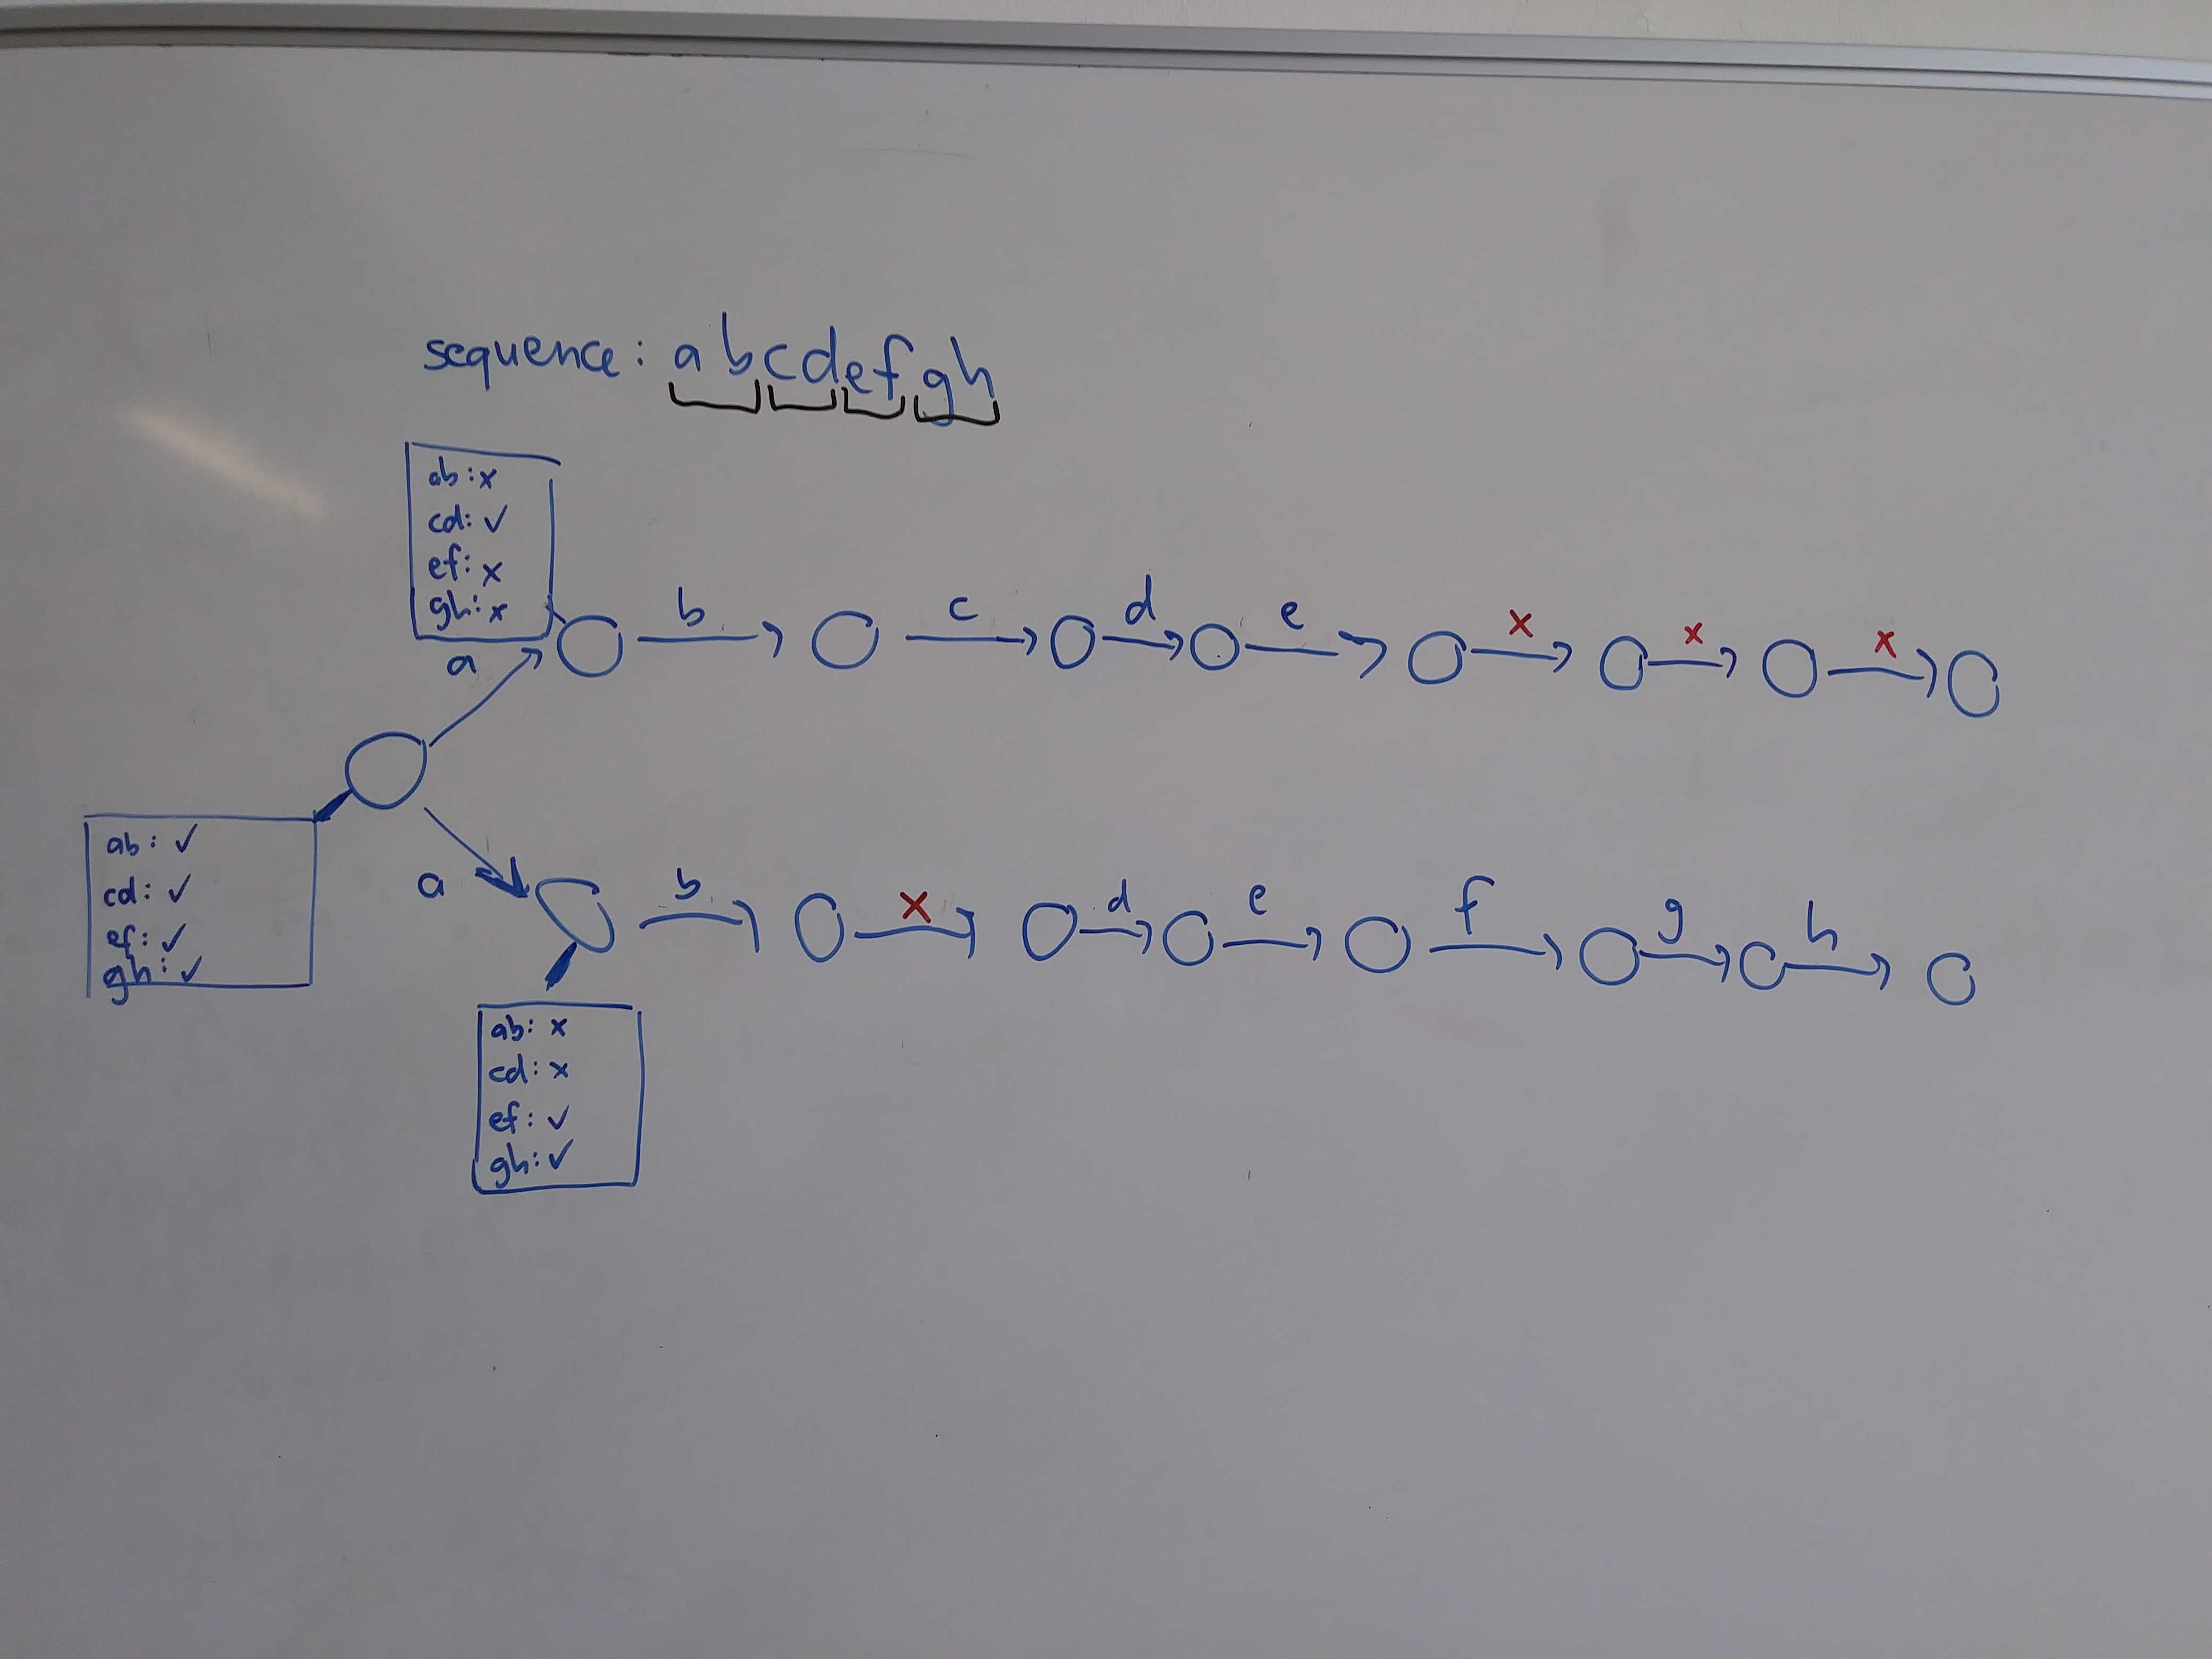 sequence: abcdefgh
ab: x
cd: ✓
ef: x
gh: x
a
b c d e x x x
ab: ✓
cd: ✓
ef: ✓
gh: ✓
a
b x d e f g h
ab: x
cd: x
ef: ✓
gh: ✓